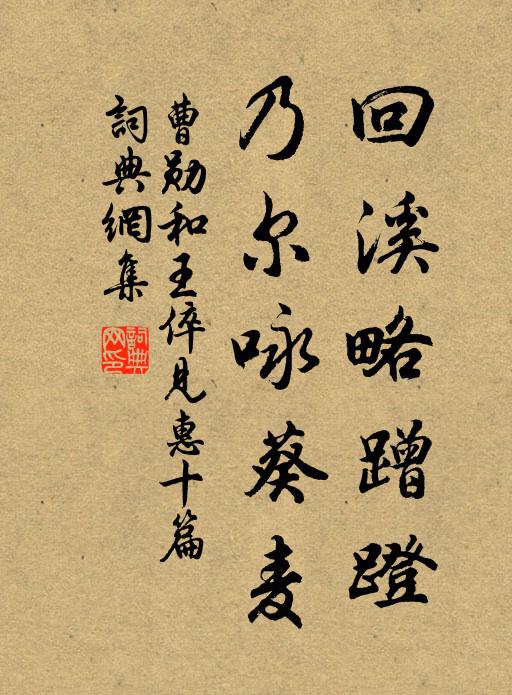 回溪略蹭蹬
乃尔咏葵麦
曹勋和王倅见惠十篇
詞典網集
詞典網印